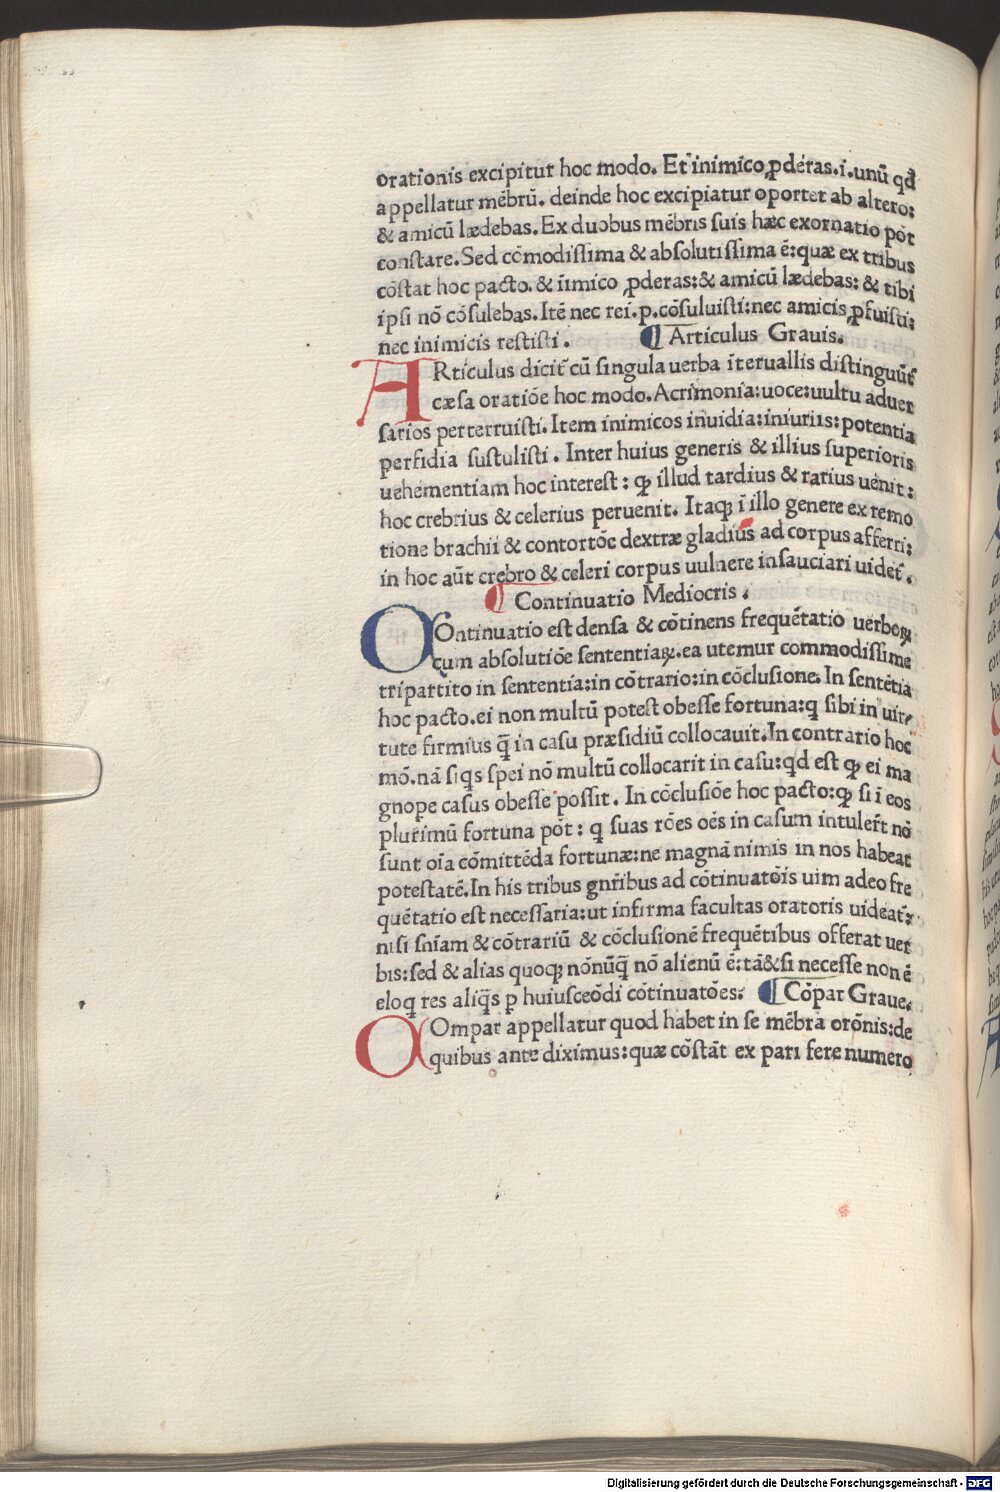 orationis excipitur hoc modo. Et inimico ꝓderas.i.unū qđ
appellatur mēbrū. deinde hoc excipiatur oportet ab altero:
& amicū lædebas. Ex duobus mēbris suis hæc exornatio pōt
constare. Sed cōmodissima & absolutissima ē: quæ ex tribus
cōstat hoc pacto. & īimico ꝓderas: & amicū lædebas: & tibi
ipsi nō cōsulebas. Itē nec rei.p.cōsuluisti: nec amicis ꝓfuisti:
nec inimicis restisti. ¶ Articulus Grauis.
ARticulus dicit̄ cū singula uerba īteruallis distinguūt̄
cæsa oratiōe hoc modo. Acrimonia: uoce: uultu aduer
sarios perterruisti. Item inimicos inuidia: iniuriis: potentia
perfidia sustulisti. Inter huius generis & illius superioris
uehementiam hoc interest: ꝙ illud tardius & rarius uenit:
hoc crebrius & celerius peruenit. Itaqꝫ ī illo genere ex remo
tione brachii & contortōe dextræ gladius ad corpus afferri:
in hoc aūt crebro & celeri corpus uulnere insauciari uidet̄.
¶ Continuatio Mediocris.
COntinuatio est densa & cōtinens frequētatio uerboꝝ
cum absolutiōe sententiaꝝ. ea utemur commodissime
tripartito in sententia: in cōtrario: in cōclusione. In sentētia
hoc pacto. ei non multū potest obesse fortuna: q sibi in uir-
tute firmius q̄ in casu præsidiū collocauit. In contrario hoc
mō. nā siqs spei nō multū collocarit in casu: qd est ꝙ ei ma
gnope casus obesse possit. In cōclusiōe hoc pacto: ꝙ si ī eos
plurimū fortuna pōt: q suas rōes oēs in casum intuler̄t nō
sunt oīa cōmittēda fortunæ: ne magnā nimis in nos habeat
potestatē. In his tribus gnr̄ibus ad cōtinuatōis uim adeo fre
quētatio est necessaria: ut infirma facultas oratoris uideat̄:
nisi snīam & cōtrariū & cōclusionē frequētibus offerat uer
bis: sed & alias quoqꝫ nōnūq̄ nō alienū ē: tā&si necesse non ē
eloq res aliq̄s p huiusceōdi cōtinuatōes: ¶ Cōpar Graue.
COmpar appellatur quod habet in se mēbra orōnis: de
quibus ante diximus: quæ cōstāt ex pari fere numero
Digitalisierung gefördert durch die Deutsche Forschungsgemeinschaft - DFG